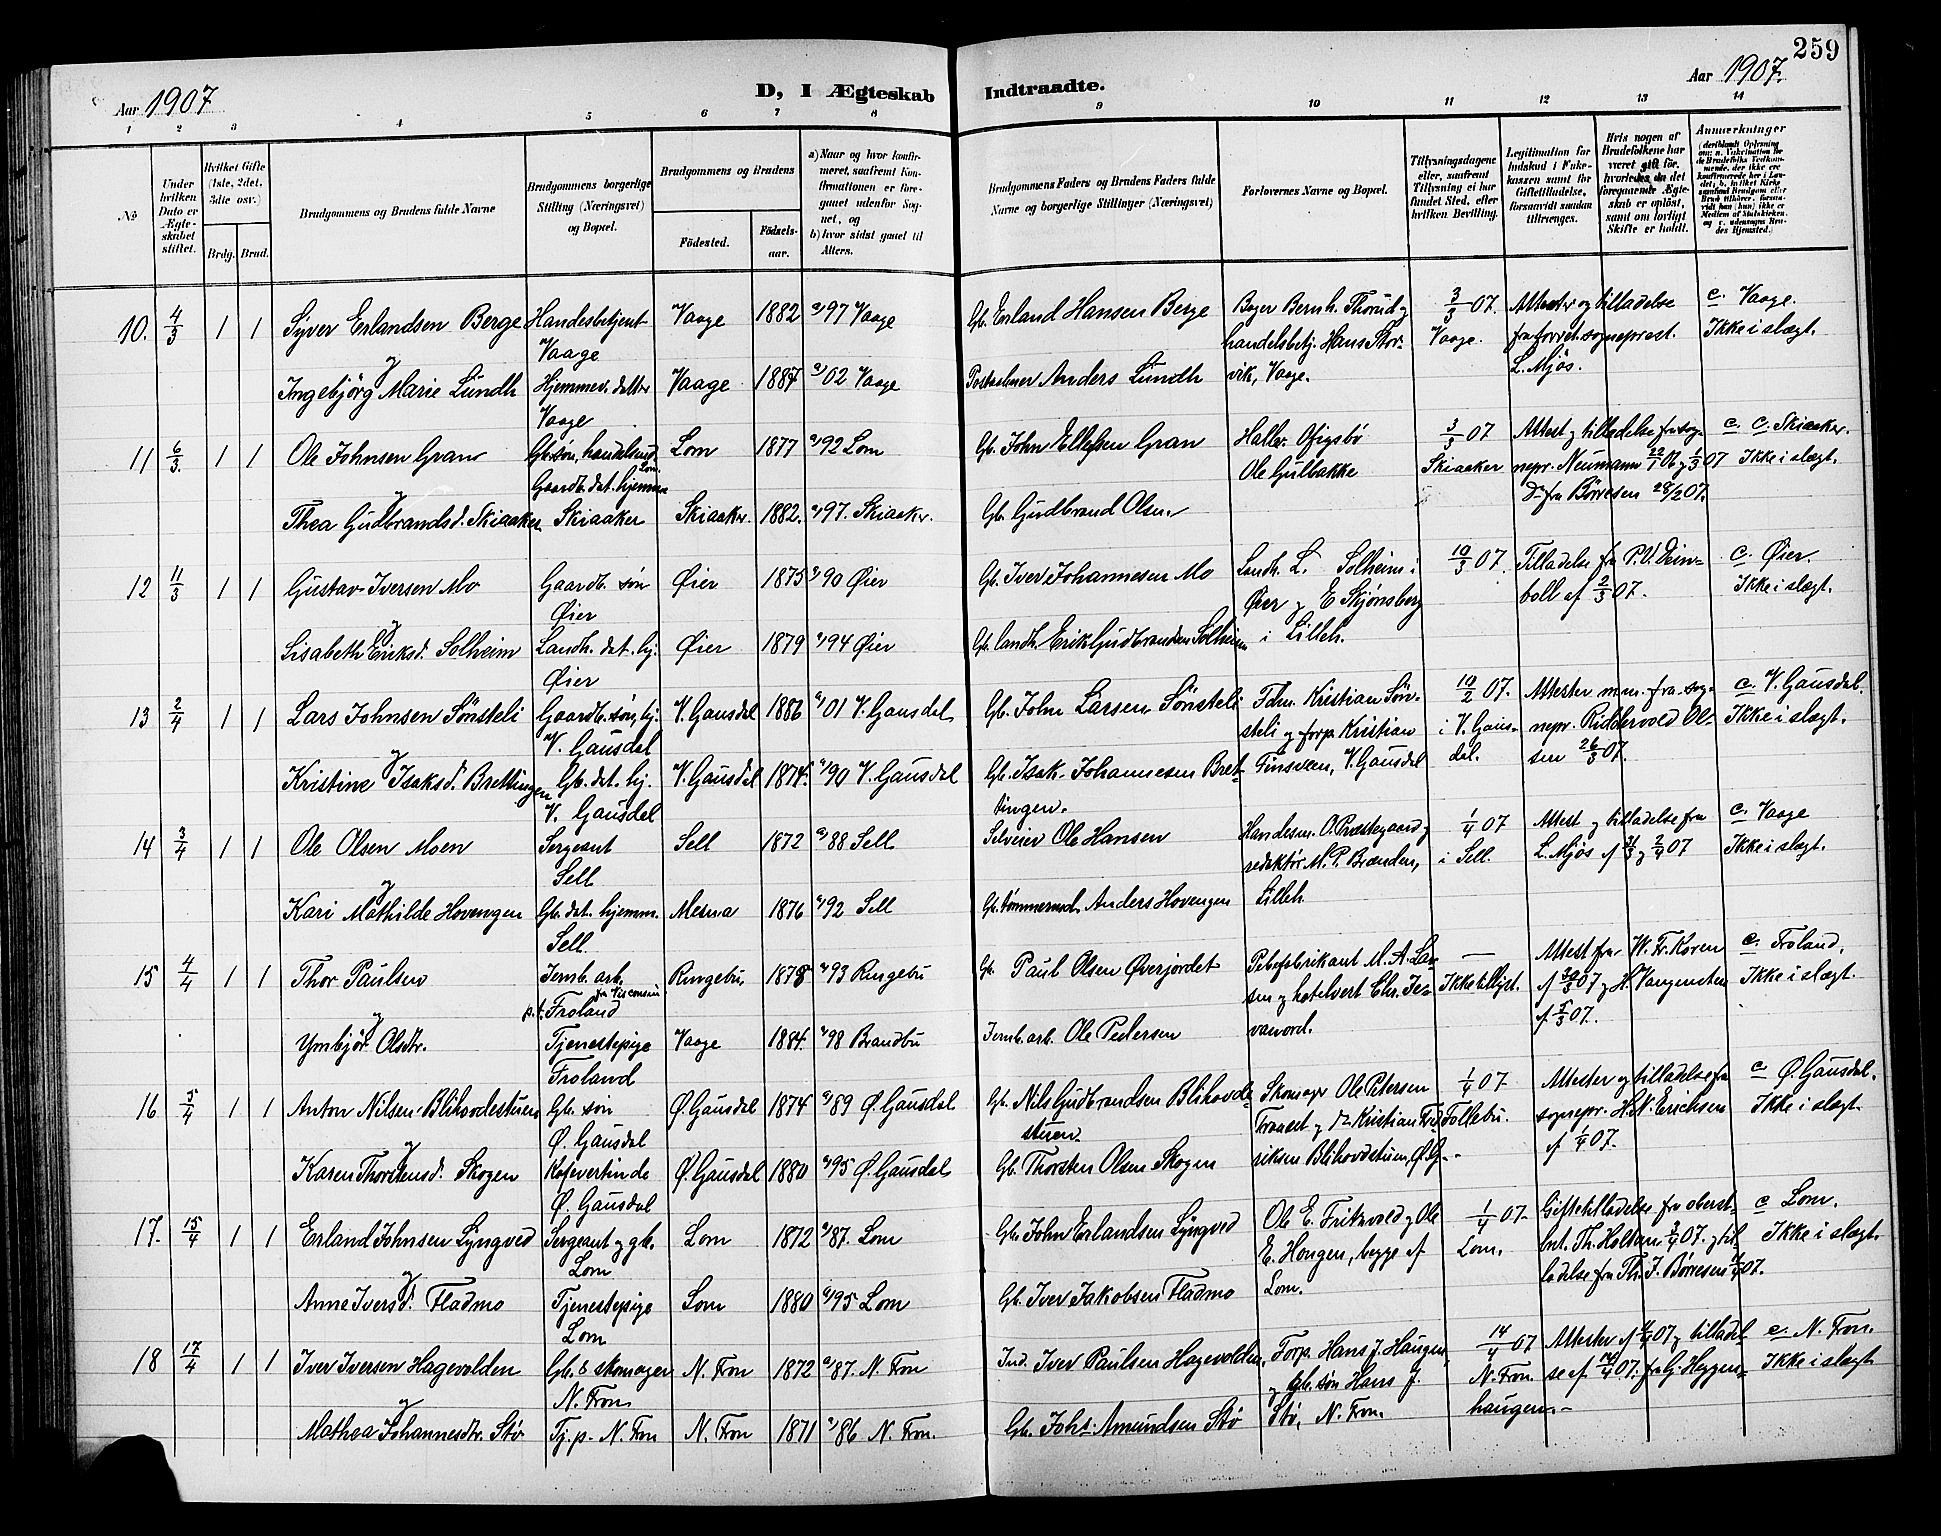 259
Aar 1907
D, I Ægteskab Indtraadte.
Aar 1907.
1 2 3 4 5 6 7 8 9 10 11 12 13 14
No
Under hvilken Dato er Ægteskabet stiftet.
Hvilket Gifte (1ste, 2det, 3die osv.)
Brdg. Brud.
Brudgommens og Brudens fulde Navne
Brudgommens borgerlige Stilling (Næringsvei) og Bopæl.
Brudgommens og Brudens
Födested.
Födsels-aar.
a) Naar og hvor konfirmeret, saafremt Konfirmationen er foregaaet udenfor Sognet, og
b) hvor sidst gaaet til Alters.
Brudgommens Faders og Brudens Faders fulde Navne og borgerlige Stillinger (Næringsvei)
Forlovernes Navne og Bopæl.
Tillysningsdagene eller, saafremt Tillysning ei har fundet Sted, efter hvilken Bevilling.
Legitimation for Indskud i Enkekassen samt for Giftetilladelse, forsaavidt saadan tiltrænges.
Hvis nogen af Brudefolkene har været gift för, hvorledes da det foregaaende Ægteskab er oplöst, samt om lovligt Skifte er holdt.
Anmærkninger
10. 4/3 1 1 Syver Erlandsen Berge Handesbetjent Vaage 1882 a/97 Vaage Gb. Erland Hansen Berge Bager Bernh. Thorud og 3/3 07. Attester og tilladelse c. Vaage.
Vaage handelsbetj. Hans Stor- Vaage. fra forret. sogneprest. Ikke i slægt.
og
Ingebjörg Marie Lundh Hjemmev. datter Vaage 1887 a/02 Vaage Postaabner Anders Lundh vik, Vaage. L. Mjøs.
Vaage
11 6/3 1 1 Ole Johnsen Gran Gb. søn, handelsmd. Lom 1877 a/92 Lom Gb. John Ellefsen Gran Halv. Ofigsbø 3/3 07 Attest og tilladelse fra sog- c. c. Skiaaker.
Lom Ole Gulbakke Skiaaker nepr. Neumann 22/1 06 og 1/3 07 Ikke i slægt.
Gaardb. dat. hjemme Do fra Børresen 28/2 07.
og
Thea Gudbrandsd. Skiaaker Skiaaker Skiaaker 1882. a/97. Skiaaker. Gb. Gudbrand Olsen
12 11/3 1 1 Gustav Iversen Mo Gaardb. søn Øier 1875 a/90 Øier Gb. Iver Johannesen Mo Landh. L. Solheim i 10/3 07. Tilladelse fra P. V. Dein- c. Øier.
Øier Øier og E Skjønsberg boll af 2/3 07. Ikke i slægt.
og
Lisabeth Eriksd. Solheim Landh. dat. hj. Øier 1879 a/94 Øier Gb. landh. Erik Gudbrandsen Solheim i Lilleh.
Øier
13 2/4 1 1 Lars Johnsen Sönsteli Gaardb. søn, hj. V. Gausdal 1886 a/01 V. Gausdal Gb. John Larsen Sönsteli Fdm. Kristian Sön- 10/2 07. Attester m.m. fra sog- c. V. Gausdal.
V. Gausdal steli og forp. Kristian i V. Gaus- nepr. Riddervold Ol- Ikke i slægt.
og
Kristine Isaksd. Brettingen Gb. dat. hj. V. Gausdal 1875. a/90 V. Gausdal Gb. Isak Johannesen Bret- Finsveen, V. Gausdal dal. sen 26/3 07.
V. Gausdal tingen.
14 3/4 1 1 Ole Olsen Moen Sergeant Sell 1872 a/88 Sell Selveier Ole Hansen Handesm. O. Præstegaard og 1/4 07 Attest og tilladelse fra c. Vaage
Sell redaktør M. P. Brænden, i Sell. L. Mjøs af 21/3 og 2/4 07 Ikke i slægt.
og
Kari Mathilde Hovengen Gb. dat. hjemm. Mesna 1876 a/92 Sell Gb. tømmermd. Anders Hovengen Lilleh.
Sell.
15 4/4 1 1 Thor Paulsen Jernb. arb. Ringebu. 1878 a/93 Ringebu Gb. Paul Olsen Øverjordet Pibefabrikant M. A. Lar- — Attest fra W. Fr. Koren c. Froland.
fra Visconsin
p. t. Froland sen og hotelvert Chr. Je- Ikke tillyst. af 30/3 07 og H. Vangensten Ikke i slægt.
og
Ymbjör Olsdtr. Tjenestepige Vaage 1884. a/98 Brandbu Jernb. arb. Ole Pedersen vanord. af 5/3 07.
Froland
16 5/4 1 1 Anton Nilsen Blihovdestuen Gb. søn Ø. Gausdal 1874 a/89 Ø. Gausdal Gb. Nils Gudbrandsen Blihovde- Skomagr Ole Petersen 1/4 07. Attester og tilladelse fra c Ø. Gausdal.
Ø. Gausdal stuen. Traaset og Do Kristian Fred- Follebu. sognepr. H. N. Erichsen Ikke i slægt.
og
Karen Thorstensd. Skogen Kafevertinde Ø. Gausdal 1880 a/95 Ø. Gausdal Gb. Thorsten Olsen Skogen riksen Blihovdstuen, Ø. G. af 1/4 07.
Ø. Gausdal
17. 15/4 1 1 Erland Johnsen Lyngved Sergeant og gb. Lom 1872 a/87. Lom Gb. John Erlandsen Lyngved Ole E. Frikvold og Ole 1/4 07. Giftetilladelse fra oberst- c Lom.
Lom E. Hougen, begge af Lom. løit. Th. Holtan 3/4 07. og til- Ikke i slægt.
og
Anne Iversd. Fladmo Tjenestepige Lom 1880 a/95 Lom Gb. Iver Jakobsen Fladmo Lom. ladelse fra Th. J. Børresen 4/4 07.
Lom
18 17/4 1 1 Iver Iversen Hagevolden Gb. & skomager N. Fron 1872 a/87. N. Fron Ind. Iver Paulsen Hagevolden Forp. Hans J. Haugen, 14/4 07 Attester af 4/4 07 og tilladel- c. N. Fron.
N. Fron og gb. søn Hans J. N. Fron. se af 14/4 07. fra G. Heggen- Ikke i slægt
og
Mathea Johannesdtr. Stö Tj. p. N. Fron N. Fron 1871 a/86 N. Fron. Gb. Johs. Amundsen Stö Stö, N. Fron. haugen.